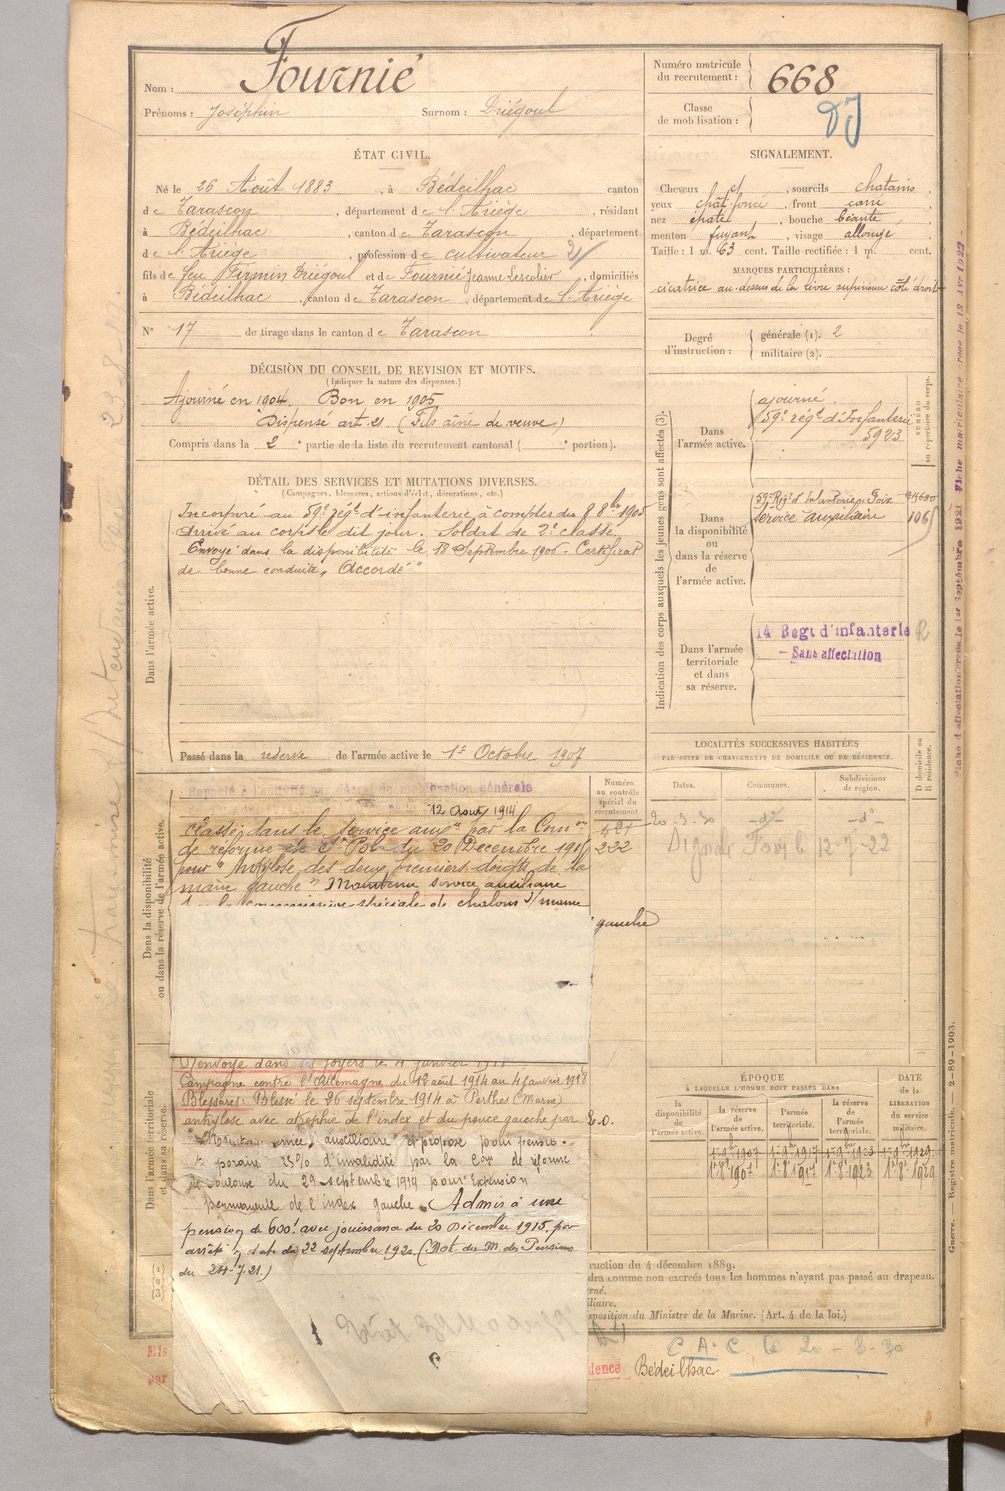 Nom : Fournié
Prénoms : Joséphin Surnom : Driégout
Numéro matricule du recrutement : 668
Classe de mobilisation :
ÉTAT CIVIL.
Né le 26 Août 1883, à Bédeilhac canton
de Tarascon, département de l'Ariège, résidant
à Bédeilhac, canton de Tarascon, département
de l'Ariège, profession de cultivateur 21
fils de feu Firmin Driégout et de Fournié Jeanne, domiciliés
à Bédeilhac, canton de Tarascon, département de l'Ariège
N° 17 de tirage dans le canton de Tarascon
SIGNALEMENT.
Cheveux et, sourcils chatains
yeux chat. fonce, front carré
nez épaté, bouche béante,
menton fuyant, visage allongé
Taille : 1 m. 63 cent. Taille rectifiée : 1 m. cent.
MARQUES PARTICULIÈRES :
cicatrice au-dessus de la lèvre supérieure côté droit
Degré d'instruction : générale (1). 2
militaire (2).
DÉCISION DU CONSEIL DE REVISION ET MOTIFS.
(Indiquer la nature des dispenses.)
Ajourné en 1904. Bon en 1905
Dispensé art. 21. (Fils aîné de veuve)
Compris dans la 2e partie de la liste du recrutement cantonal ( e portion).
DÉTAIL DES SERVICES ET MUTATIONS DIVERSES.
(Campagnes, blessures, actions d'éclat, décorations, etc.)
Dans l'armée active.
Incorporé au 59e régt d'infanterie à compter du 8 8bre 1905
Arrivé au corps le dit jour. Soldat de 2e classe
Envoyé dans la disponibilité le 18 Septembre 1906 - Certificat
de bonne conduite „ Accordé "
Passé dans la réserve de l'armée active le 1er Octobre 1907
Indication des corps auxquels les jeunes gens sont affectés (3).
NUMÉRO au répertoire du corps.
Dans l'armée active.
ajourné
59e régt d'Infanterie
5923
Dans la disponibilité ou dans la réserve de l'armée active.
59e Régt d'Infanterie Foix
service auxiliaire 1065
Dans l'armée territoriale et dans sa réserve.
14 Regt d'infanterie R
- Sans affectation
LOCALITÉS SUCCESSIVES HABITÉES
PAR SUITE DE CHANGEMENTS DE DOMICILE OU DE RÉSIDENCE.
Dates. Communes. Subdivisions de région. D domicile ou R résidence.
20-3-30 -do- -do-
12-7-22
Dans la disponibilité ou dans la réserve de l'armée active.
Numéro au contrôle spécial du recrutement
Rappelé à l'activité par décret de mobilisation générale
12 Août 1914
classé dans le service auxre par la Comon
de réforme de St Pol du 20 Décembre 1915 222
pour " Ankylose des deux premiers doigts de la
main gauche " Maintenu service auxiliaire
commission spéciale de chalons s/ marne
gauche
Dans l'armée territoriale et dans sa réserve.
Renvoyé dans ses foyers le 4 janvier
Campagne contre l'Allemagne du 12 août 1914 au 4 janvier 1918
Blessures : Blessé le 26 septembre 1914 à Perthes (Marne)
ankylose avec atrophie de l'index et du pouce gauche par
auxiliaire et proposé pour pension
25% d'invalidité par la Con de réforme
de Toulouse du 29 septembre 1919 pour Extension
permanente de l'index gauche. Admis à une
pension de 600f avec jouissance du 20 Décembre 1915, par
arrêté du 22 septembre 1920 (Not. du M. des Pensions
du 24-7-21.)
ÉPOQUE
À LAQUELLE L'HOMME DOIT PASSER DANS
la disponibilité de l'armée active. la réserve de l'armée active. l'armée territoriale. la réserve de l'armée territoriale.
DATE de la LIBÉRATION du service militaire.
1er 8bre 1907 1er 8bre 1917 1er 8bre 1923 1er 8bre 1929
ruction du 4 décembre 1889.
dra comme non exercés tous les hommes n'ayant pas passé au drapeau.
rné.
iliaire.
sposition du Ministre de la Marine. (Art. 4 de la loi.)
C. A. C. le 20-3-30
dence Bédeilhac
Guerre. Registre matricule. — 2-89-1903.